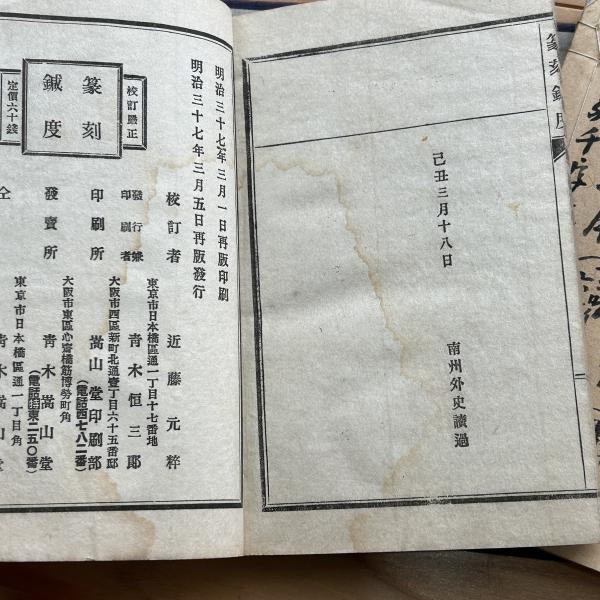 篆刻鍼度
己丑三月十八日
南州外史讀過
明治三十七年三月一日再版印刷
明治三十七年三月五日再版發行
校訂者 近藤元粹
東京市日本橋區通一丁目十七番地
發行兼印刷者 青木恒三郎
大阪市西區新町北通壹丁目六十五番邸
印刷所 嵩山堂印刷部
(電話西七八二番)
大阪市東區心齋橋筋博勞町角
發賣所 青木嵩山堂
(電話特東二五〇番)
東京市日本橋區通一丁目角
仝 青木嵩山堂
校訂嚴正
篆刻
鍼度
定價六十錢